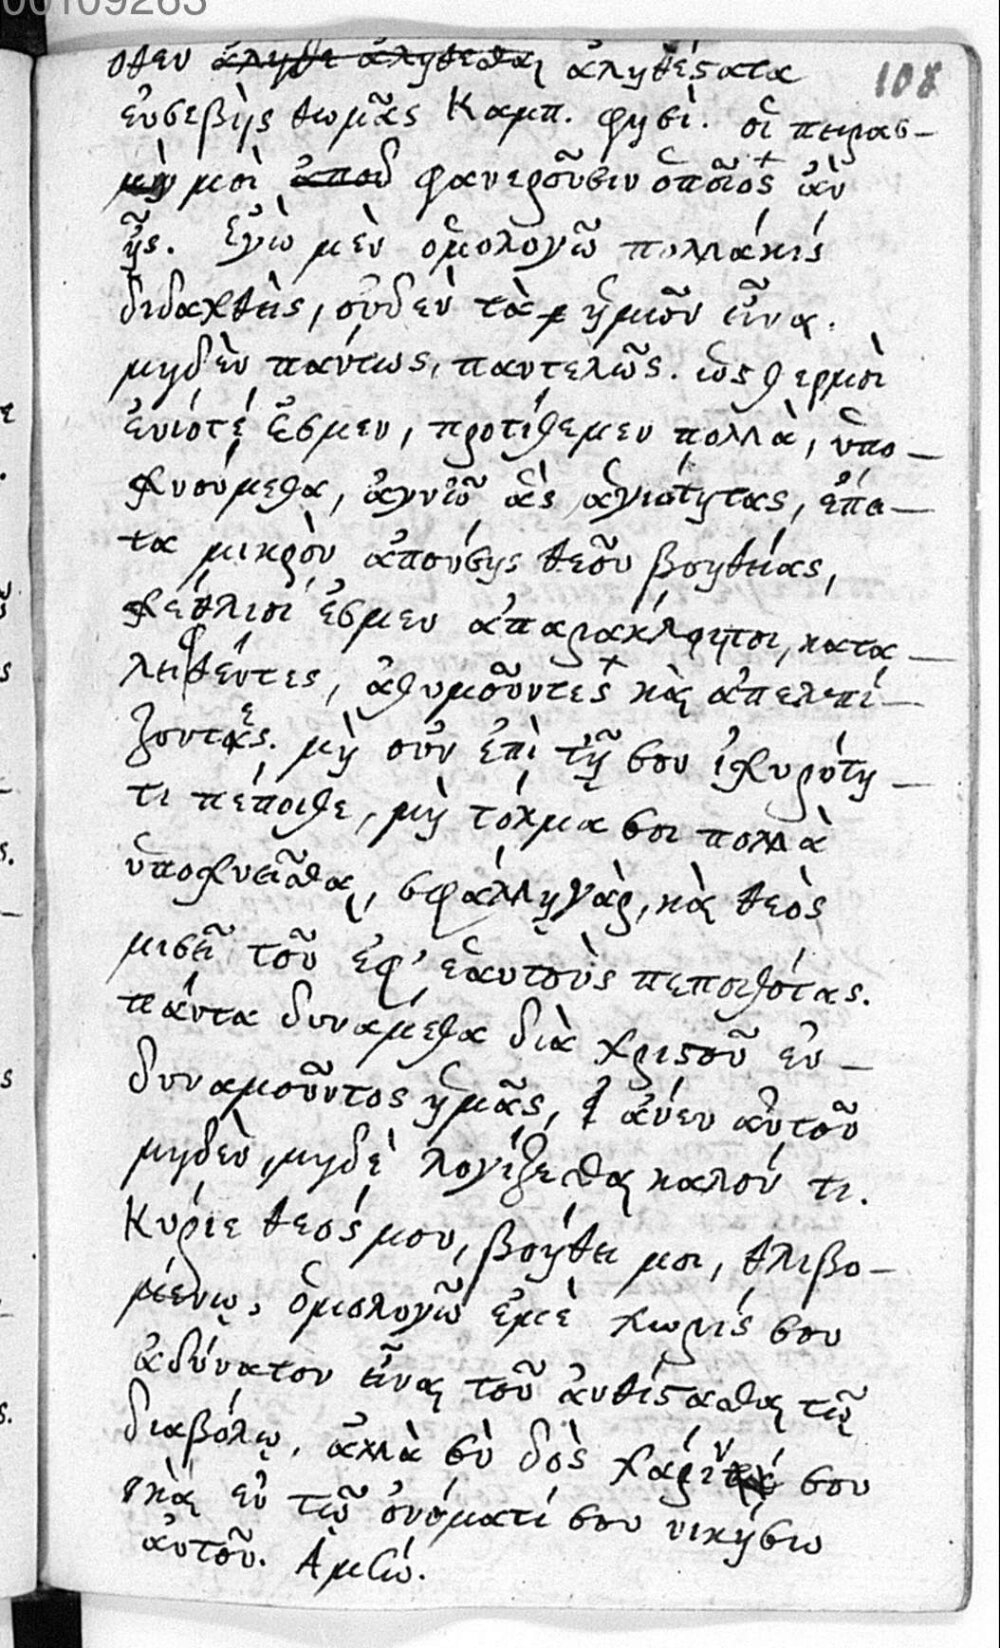 00109263
108
ὅθεν ἀληθέστατα
εὐσεβὴς θωμᾶς Καμπ. φησὶ. οἱ πειρασ-
μοὶ φανεροῦσιν ὁποῖος ἂν
ᾖς. Ἐγὼ μὲν ὁμολογῶ πολλάκις
διδαχθεὶς, οὐδὲν τὰ ἡμῶν εἶναι.
μηδὲν πάντως, παντελῶς. ὡς θερμοὶ
ἐνίοτέ ἐσμεν, προτίθεμεν πολλὰ, ὑπο-
χνούμεθα, ἁγνῶ ἃς ἁγιότητας, ἔπει-
τα μικρὸν ἀπούσης θεοῦ βοηθείας,
ἐσμεν ἀπαράκλητοι, κατα-
λειφθέντες, ἀθυμοῦντες καὶ ἀπελπί-
ζοντες. μὴ οὖν ἐπὶ τῇ σου ἰχυρότη-
τι πέποιθε, μὴ τόλμα σοι πολλὰ
ὑποχνεῖσθαι, σφάλλῃ γὰρ, καὶ θεὸς
μισεῖ τοῦ ἐφ' ἑαυτοὺς πεποιθότας.
πάντα δυνάμεθα διὰ χριστοῦ ἐν-
δυναμοῦντος ἡμᾶς, ἄνευ αὐτοῦ
μηδὲν, μηδὲ λογίζεσθαι καλόν τι.
Κύριε θεός μου, βοήθει μοι, θλιβο-
μένῳ, ὁμολογῶ ἐμὲ χωρίς σου
ἀδύνατον εἶναι τοῦ ἀνθίστασθαι τῷ
διαβόλῳ, ἀλλὰ σὺ δὸς χάριν σου
καὶ ἐν τῷ ὀνόματί σου νικήσω
αὐτοῦ. Ἀμὼ.